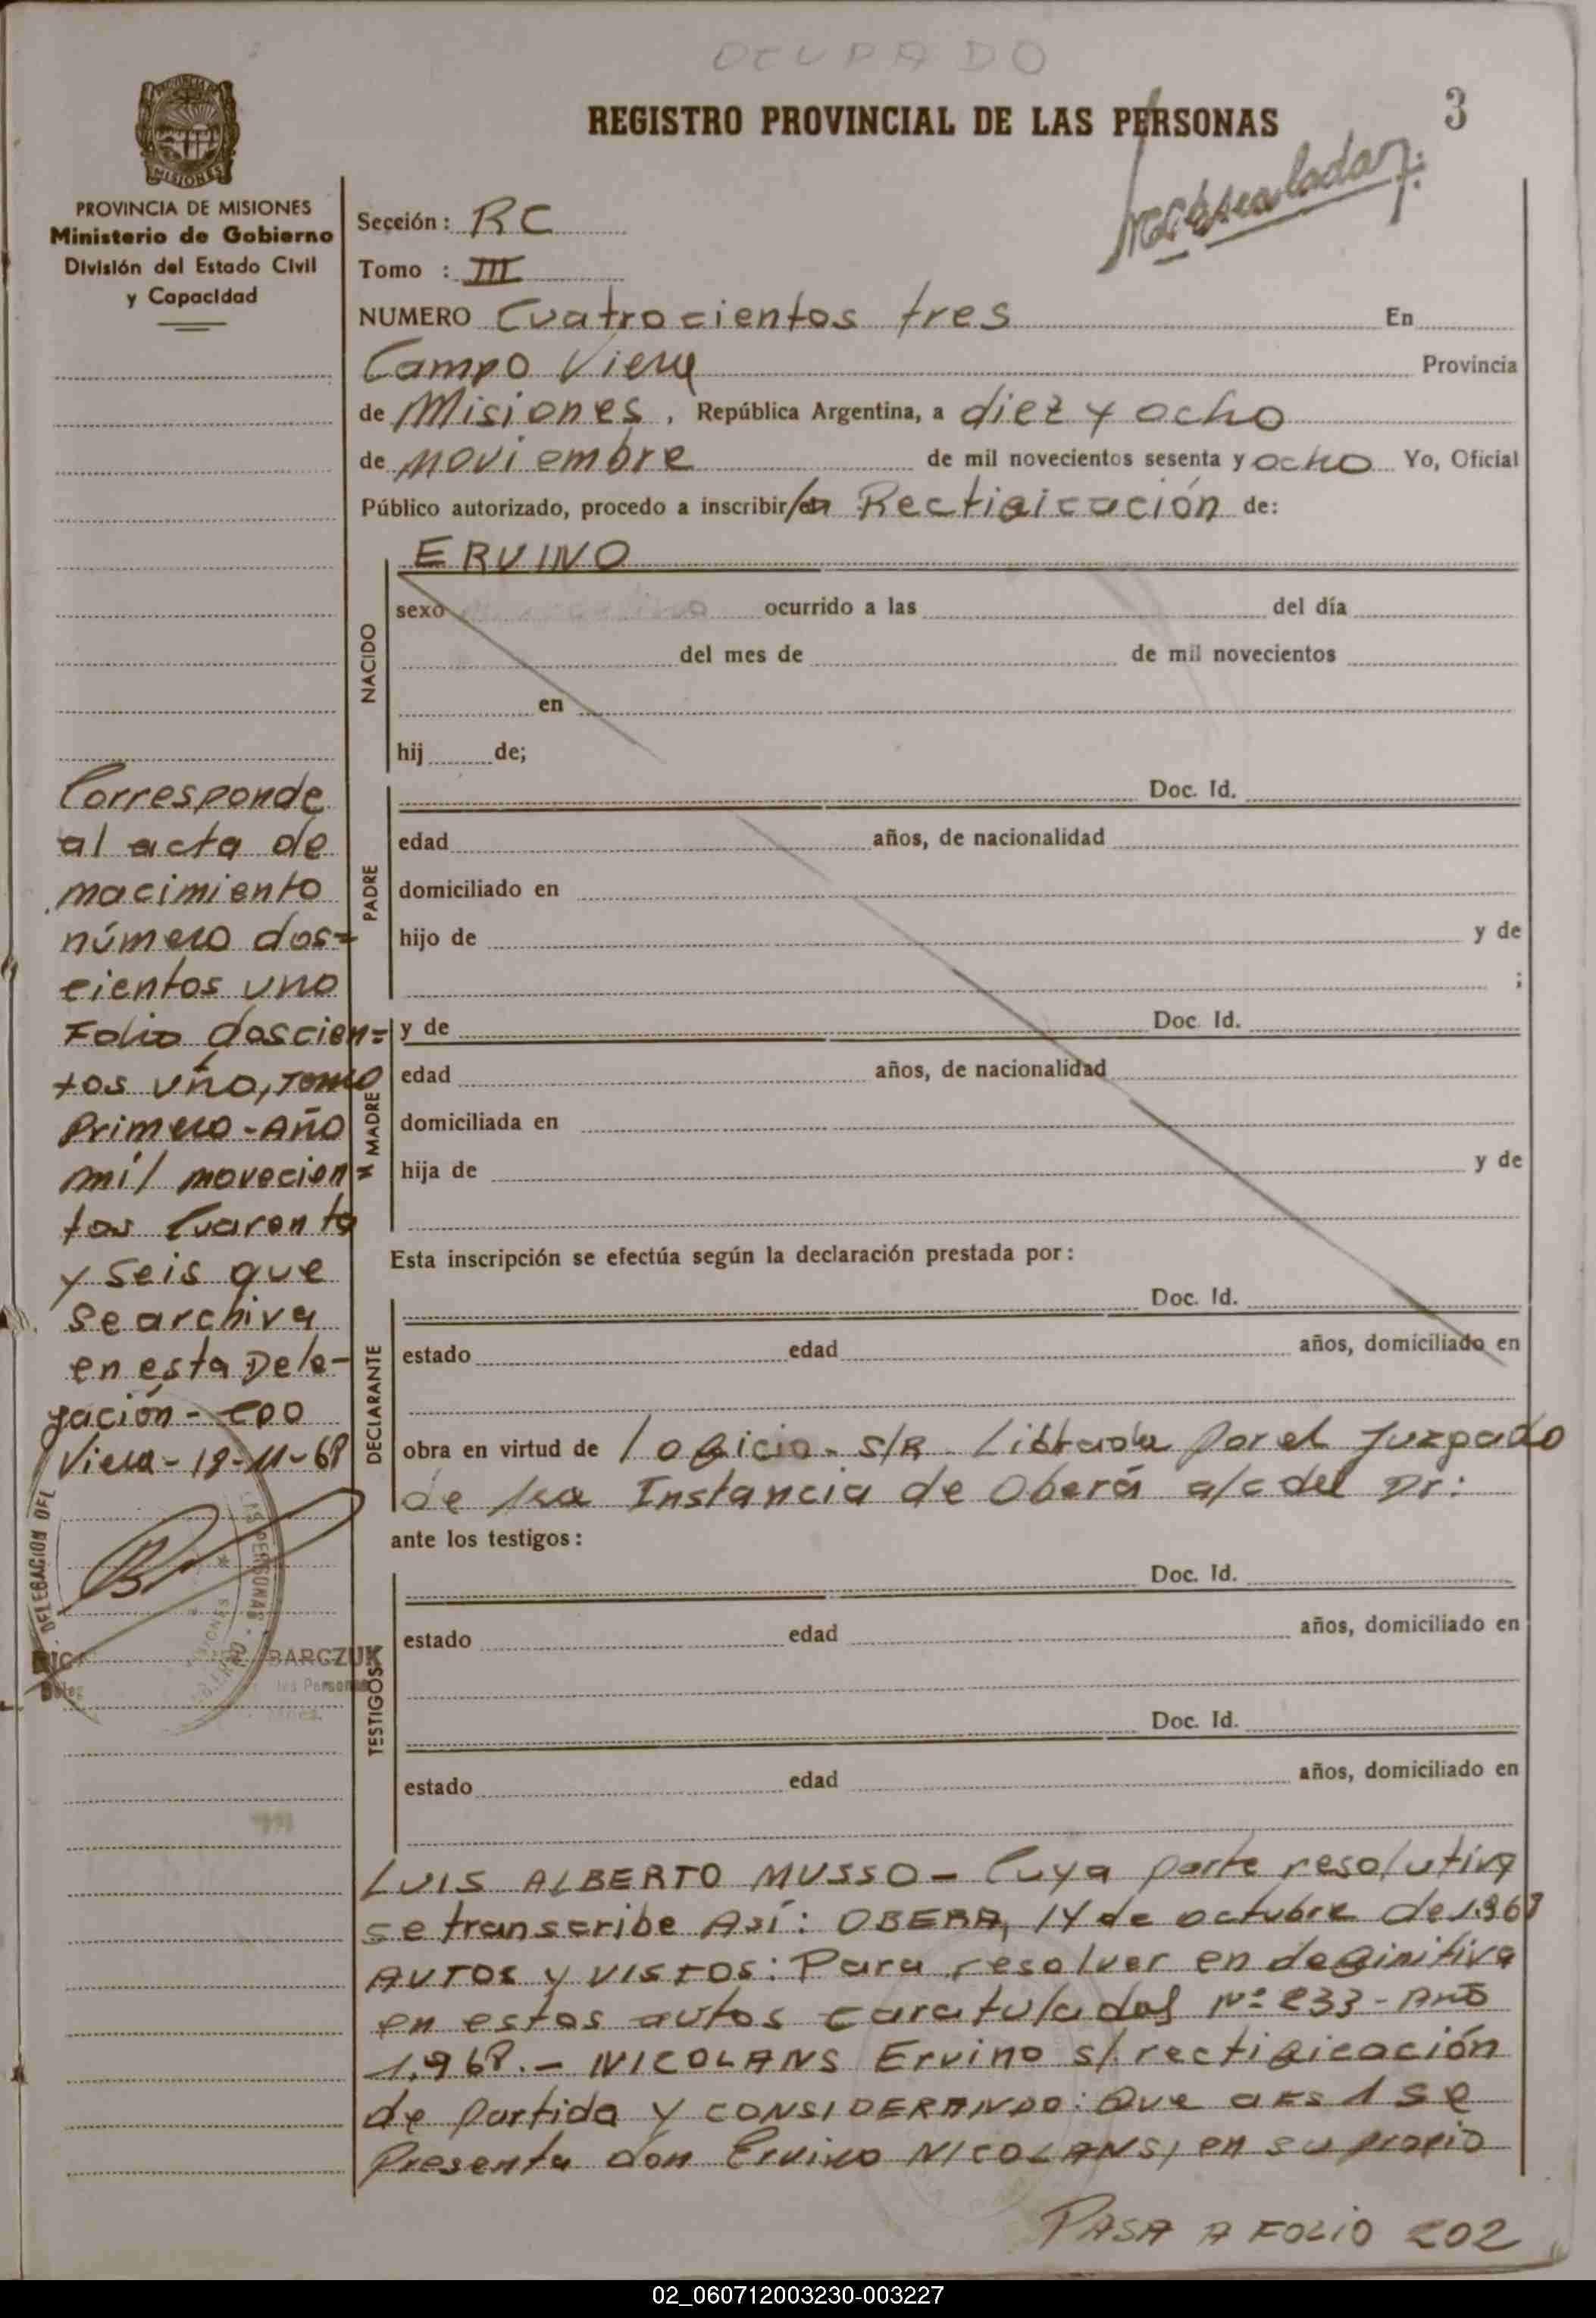 OCUPADO
REGISTRO PROVINCIAL DE LAS PERSONAS
3
MISIONES
PROVINCIA DE MISIONES
Ministerio de Gobierno
División del Estado Civil
y Capacidad
Sección: RC
Tomo : III
NUMERO Cuatrocientos tres En
Campo Viera Provincia
de Misiones, República Argentina, a diez y ocho
de noviembre de mil novecientos sesenta y ocho Yo, Oficial
Público autorizado, procedo a inscribir/ Rectificación de:
NACIDO
ERVINO
sexo ocurrido a las del día
del mes de de mil novecientos
en
hij de;
PADRE
Doc. Id.
edad años, de nacionalidad
domiciliado en
hijo de y de
;
MADRE
y de Doc. Id.
edad años, de nacionalidad
domiciliada en
hija de y de
Esta inscripción se efectúa según la declaración prestada por:
DECLARANTE
Doc. Id.
estado edad años, domiciliado en
obra en virtud de / oficio - S/R. Librado por el Juzgado
de 1ra Instancia de Oberá a/c del Dr:
ante los testigos:
TESTIGOS
Doc. Id.
estado edad años, domiciliado en
Doc. Id.
estado edad años, domiciliado en
LUIS ALBERTO MUSSO - Cuya parte resolutiva
se transcribe Así: OBERA, 14 de octubre de 1.968
AUTOS y VISTOS: Para resolver en definitiva
en estos autos caratulados Nº 233 - Año
1.968.- NICOLANS Ervino s/. rectificación
de partida y CONSIDERANDO: Que a FS 1 se
Presenta don Ervino NICOLANS, en su propio
PASA A FOLIO 202
Corresponde
al acta de
nacimiento
número dos=
cientos uno
Folio doscien=
tos uno, Tomo
Primero - Año
mil novecien=
tos Cuarenta
y seis que
se archiva
en esta Dele-
gación - CPO
Viera - 18-11-68
DELEGACION DEL
LAS PERSONAS
BARCZUK
02_060712003230-003227